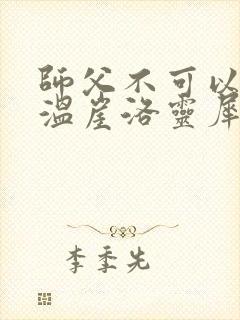 師父不可以
溫崖洛靈犀
李季先